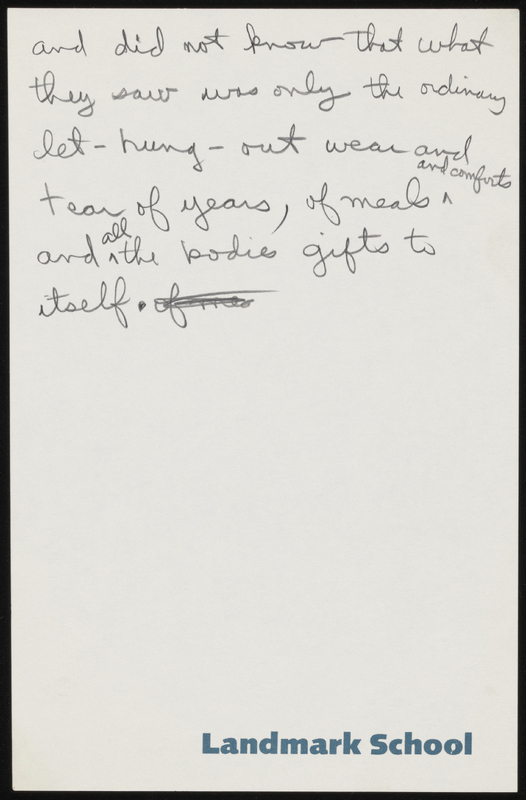 and did not know that what
they saw was only the ordinary
let-hung-out wear and
tear of years, of meals ^ and comforts
and ^ all the bodies gifts to
itself. of mes
Landmark School